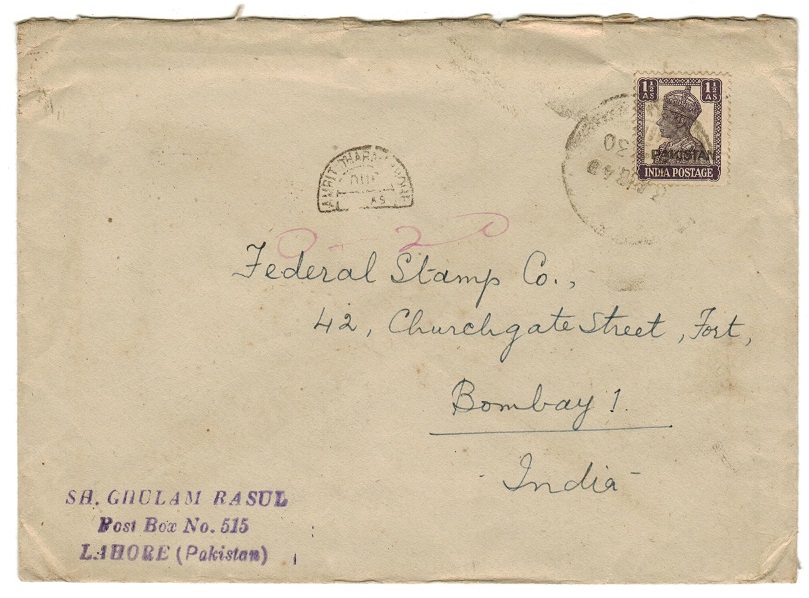 1½ AS 1½ AS
PAKISTAN
INDIA POSTAGE
30
AMRIT DHARA LAHORE
DUE
AS
Federal Stamp Co.,
42, Churchgate Street, Fort,
Bombay 1.
India
SH. GHULAM RASUL
Post Box No. 515
LAHORE (Pakistan)